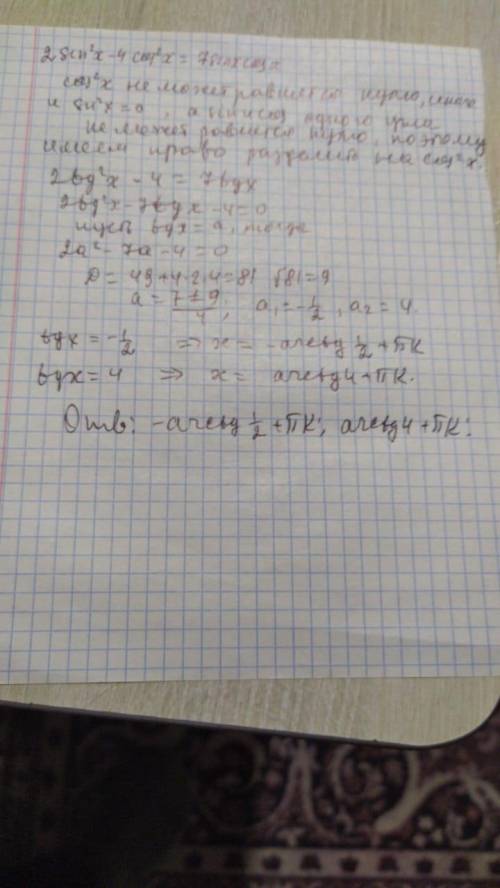 2 sin²x - 4 cos²x = 7sinxcosx
cos²x не может равняется нулю, иначе
и sin²x = 0, а синус одного угла
не может равняется нулю, поэтому
имеем право разделить на cos²x.
2tg²x - 4 = 7tgx
2tg²x - 7tgx - 4 = 0
пусть tgx = a, тогда
2a² - 7a - 4 = 0
D = 49 + 4·2·4 = 81 √81 = 9
a = 7 ± 9 / 4 ; a₁ = -1/2 , a₂ = 4.
tgx = -1/2 ⇒ x = -arctg 1/2 + πk
tgx = 4 ⇒ x = arctg4 + πk.
Отв: -arctg 1/2 + πk; arctg4 + πk.